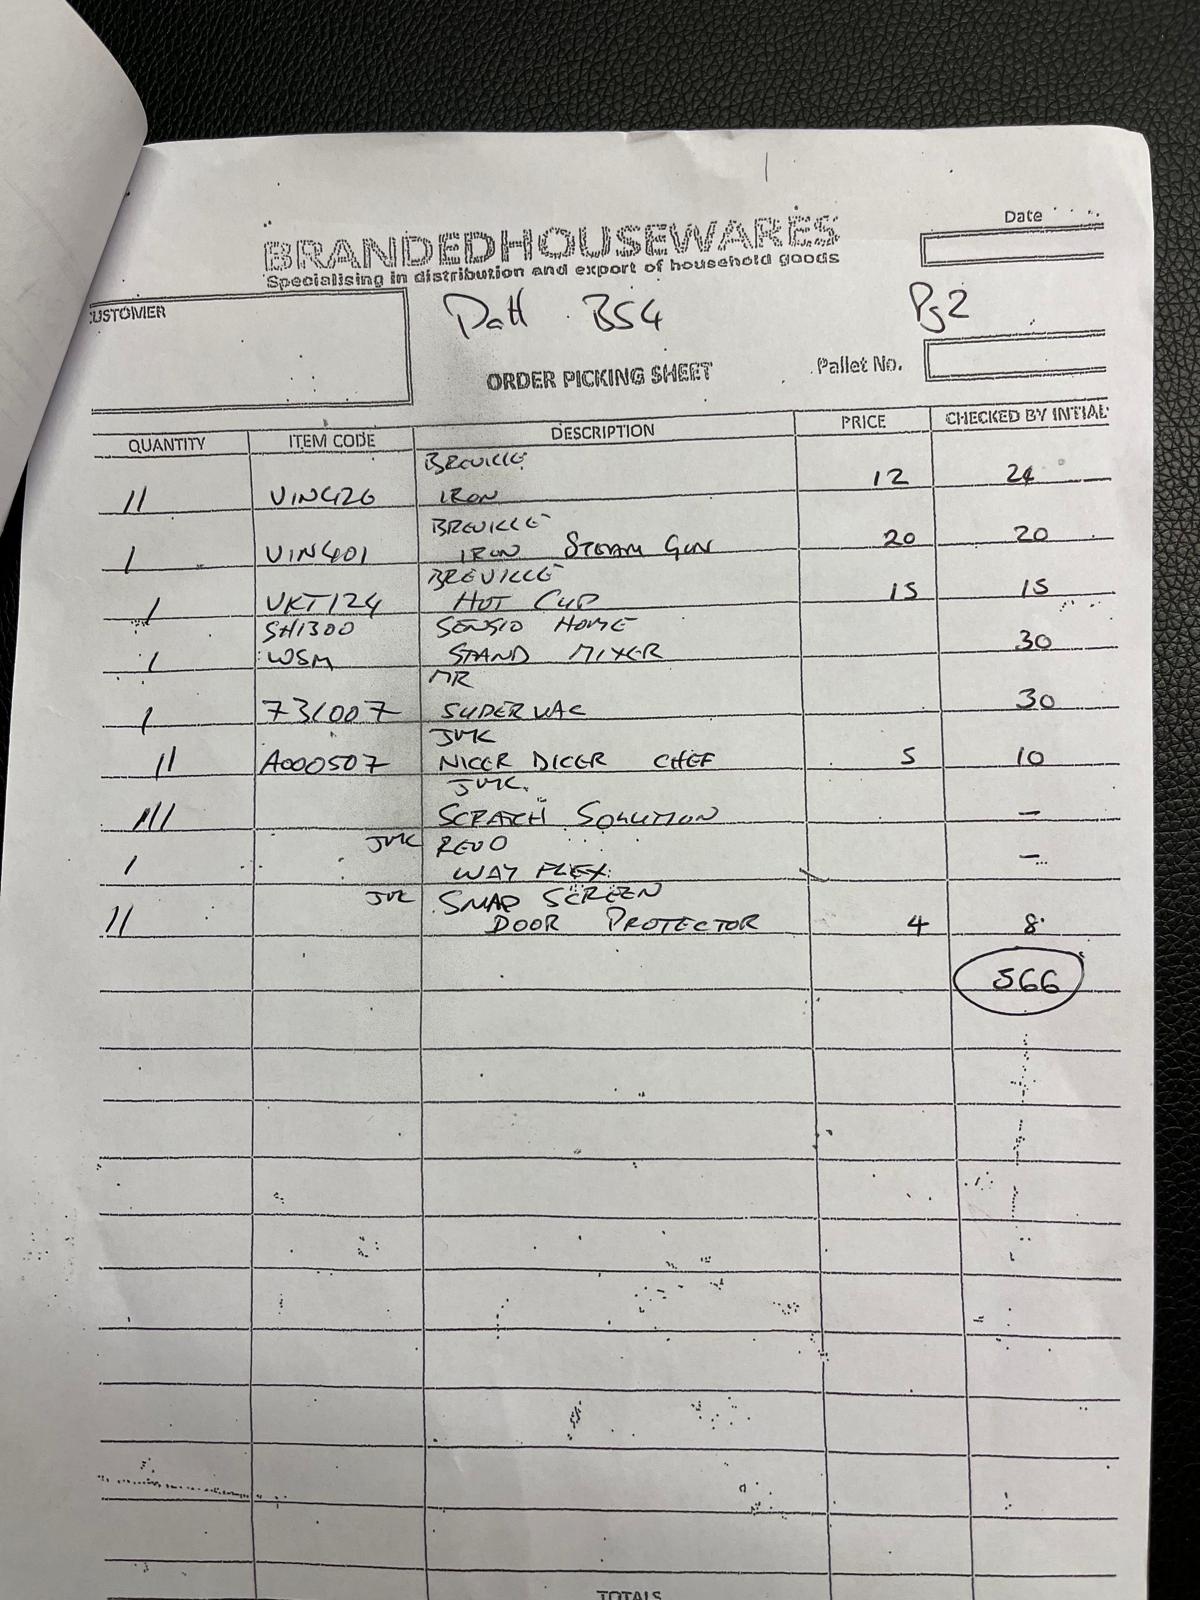 BRANDEDHOUSEWARES
Specialising in distribution and export of household goods
Date
CUSTOMER
BS4
Pg2
ORDER PICKING SHEET
Pallet No.
QUANTITY ITEM CODE DESCRIPTION PRICE CHECKED BY INTIAL
BREVILLE
II VIN426 IRON 12 24
BREVILLE
I VIN401 IRON STEAM GUN 20 20
BREVILLE
I VKT124 HOT CUP 15 15
SH1300 SENSIO HOME
I WSM STAND MIXER 30
MR
I 731007 SUPER VAC 30
JML
II A000507 NICER DICER CHEF 5 10
JML
III SCRATCH SOLUTION –
JML REVO
I WAY FLEX –
JML SNAP SCREEN
II DOOR PROTECTOR 4 8
566
TOTALS